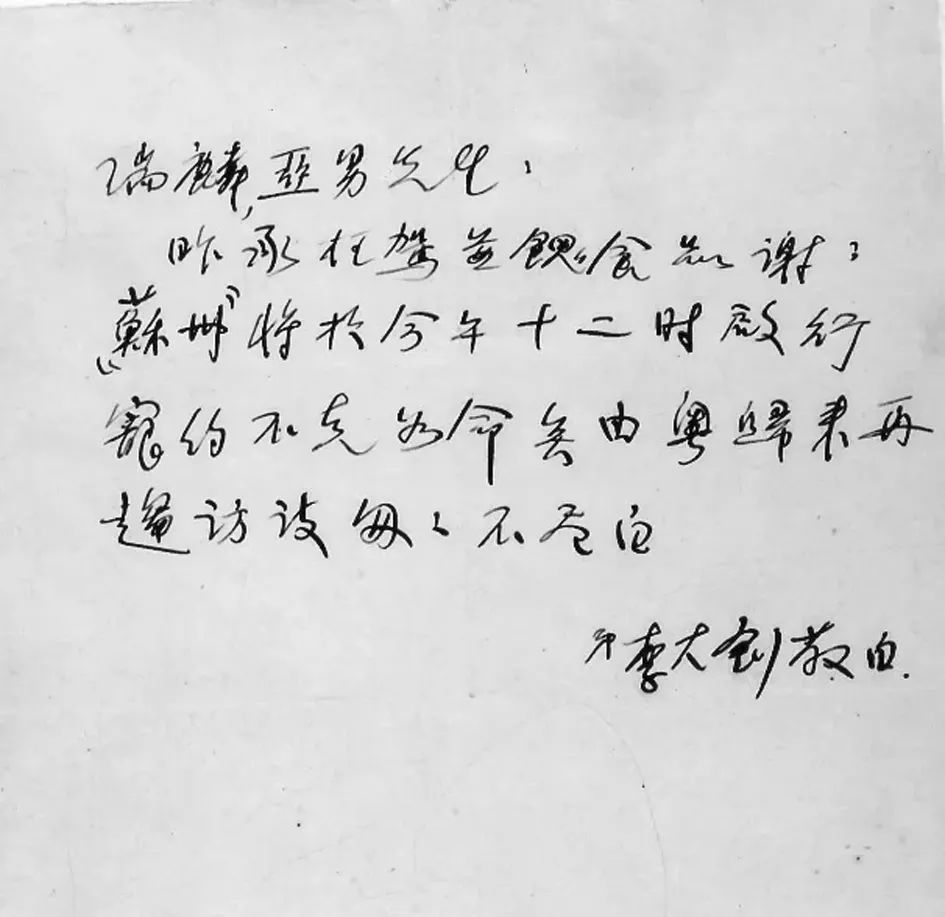 瑞麟,亞男先生:
昨承枉駕並餽食品謝謝:
“蘇州”将於今午十二时啟行
寵約不克如命矣由粵歸来再
趨访谈匆匆不尽白
弟李大釗敬白.